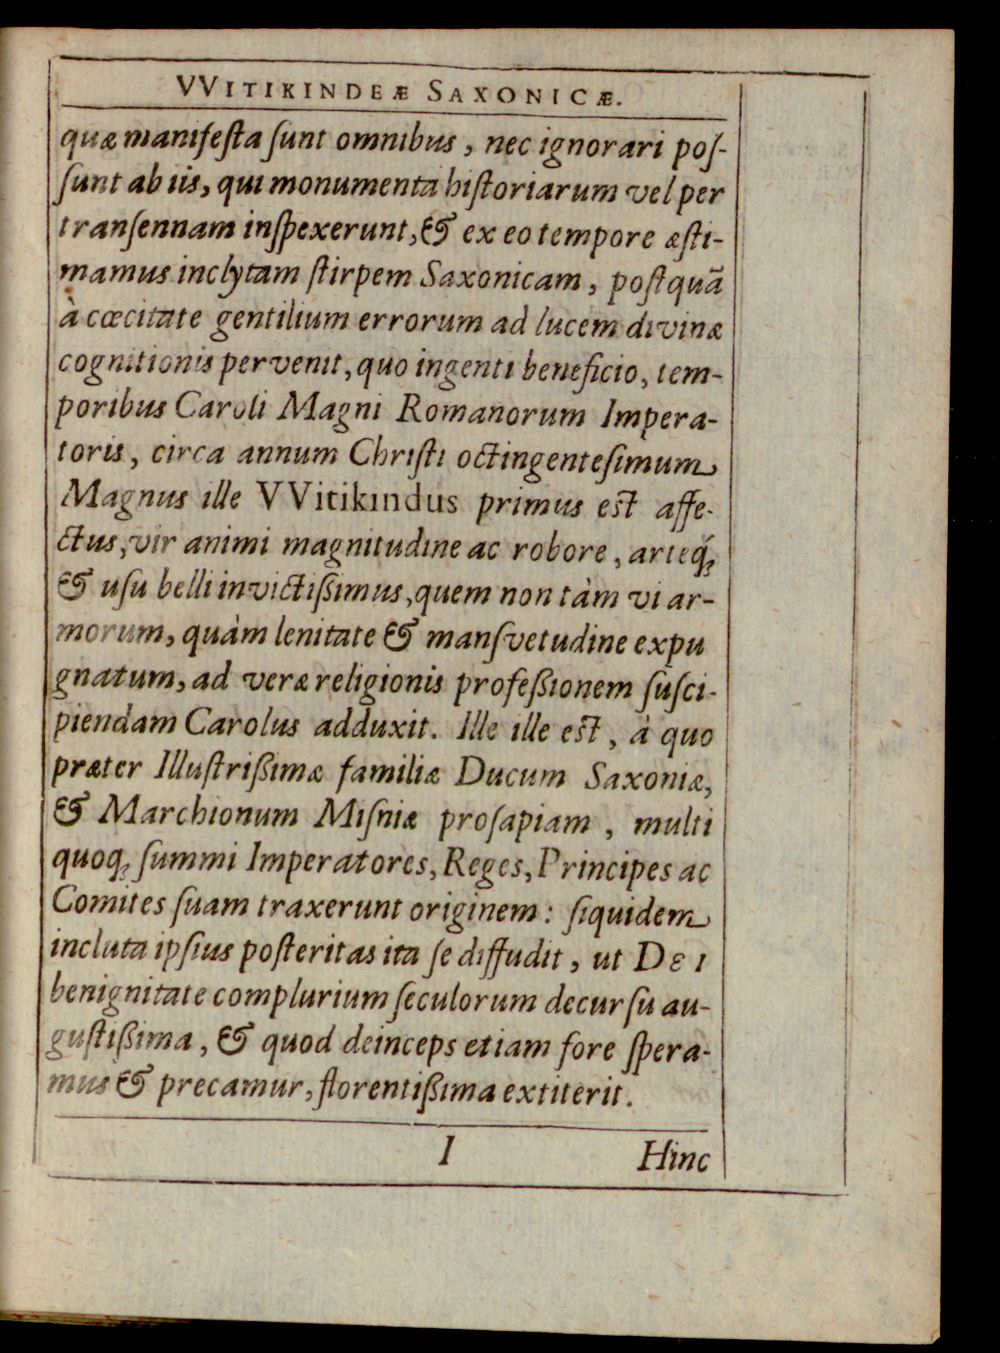 VVITIKINDEÆ SAXONICÆ.
quæ manifeſta ſunt omnibus, nec ignorari poſ-
ſunt ab iis, qui monumenta hiſtoriarum vel per
tranſennam inſpexerunt, & ex eo tempore æſti-
mamus inclytam ſtirpem Saxonicam, poſtquā
à cœcitate gentilium errorum ad lucem divinæ
cognitionis pervenit, quo ingenti beneficio, tem-
poribus Caroli Magni Romanorum Impera-
toris, circa annum Chriſti octingenteſimum
Magnus ille VVitikindus primus est affe-
ctus, vir animi magnitudine ac robore, arteq́;
& uſu belli invictißimus, quem non tàm vi ar-
morum, quàm lenitate & manſvetudine expu
gnatum, ad veræ religionis profeßionem ſuſci-
piendam Carolus adduxit. Ille ille est, à quo
præter Illuſtrißimæ familiæ Ducum Saxoniæ,
& Marchionum Miſniæ proſapiam, multi
quoq; ſummi Imperatores, Reges, Principes ac
Comites ſuam traxerunt originem: ſiquidem
incluta ipſius poſteritas ita ſe diffudit, ut DEI
benignitate complurium ſeculorum decurſu au-
guſtißima, & quod deinceps etiam fore ſpera-
mus & precamur, florentißima extiterit.
I Hinc